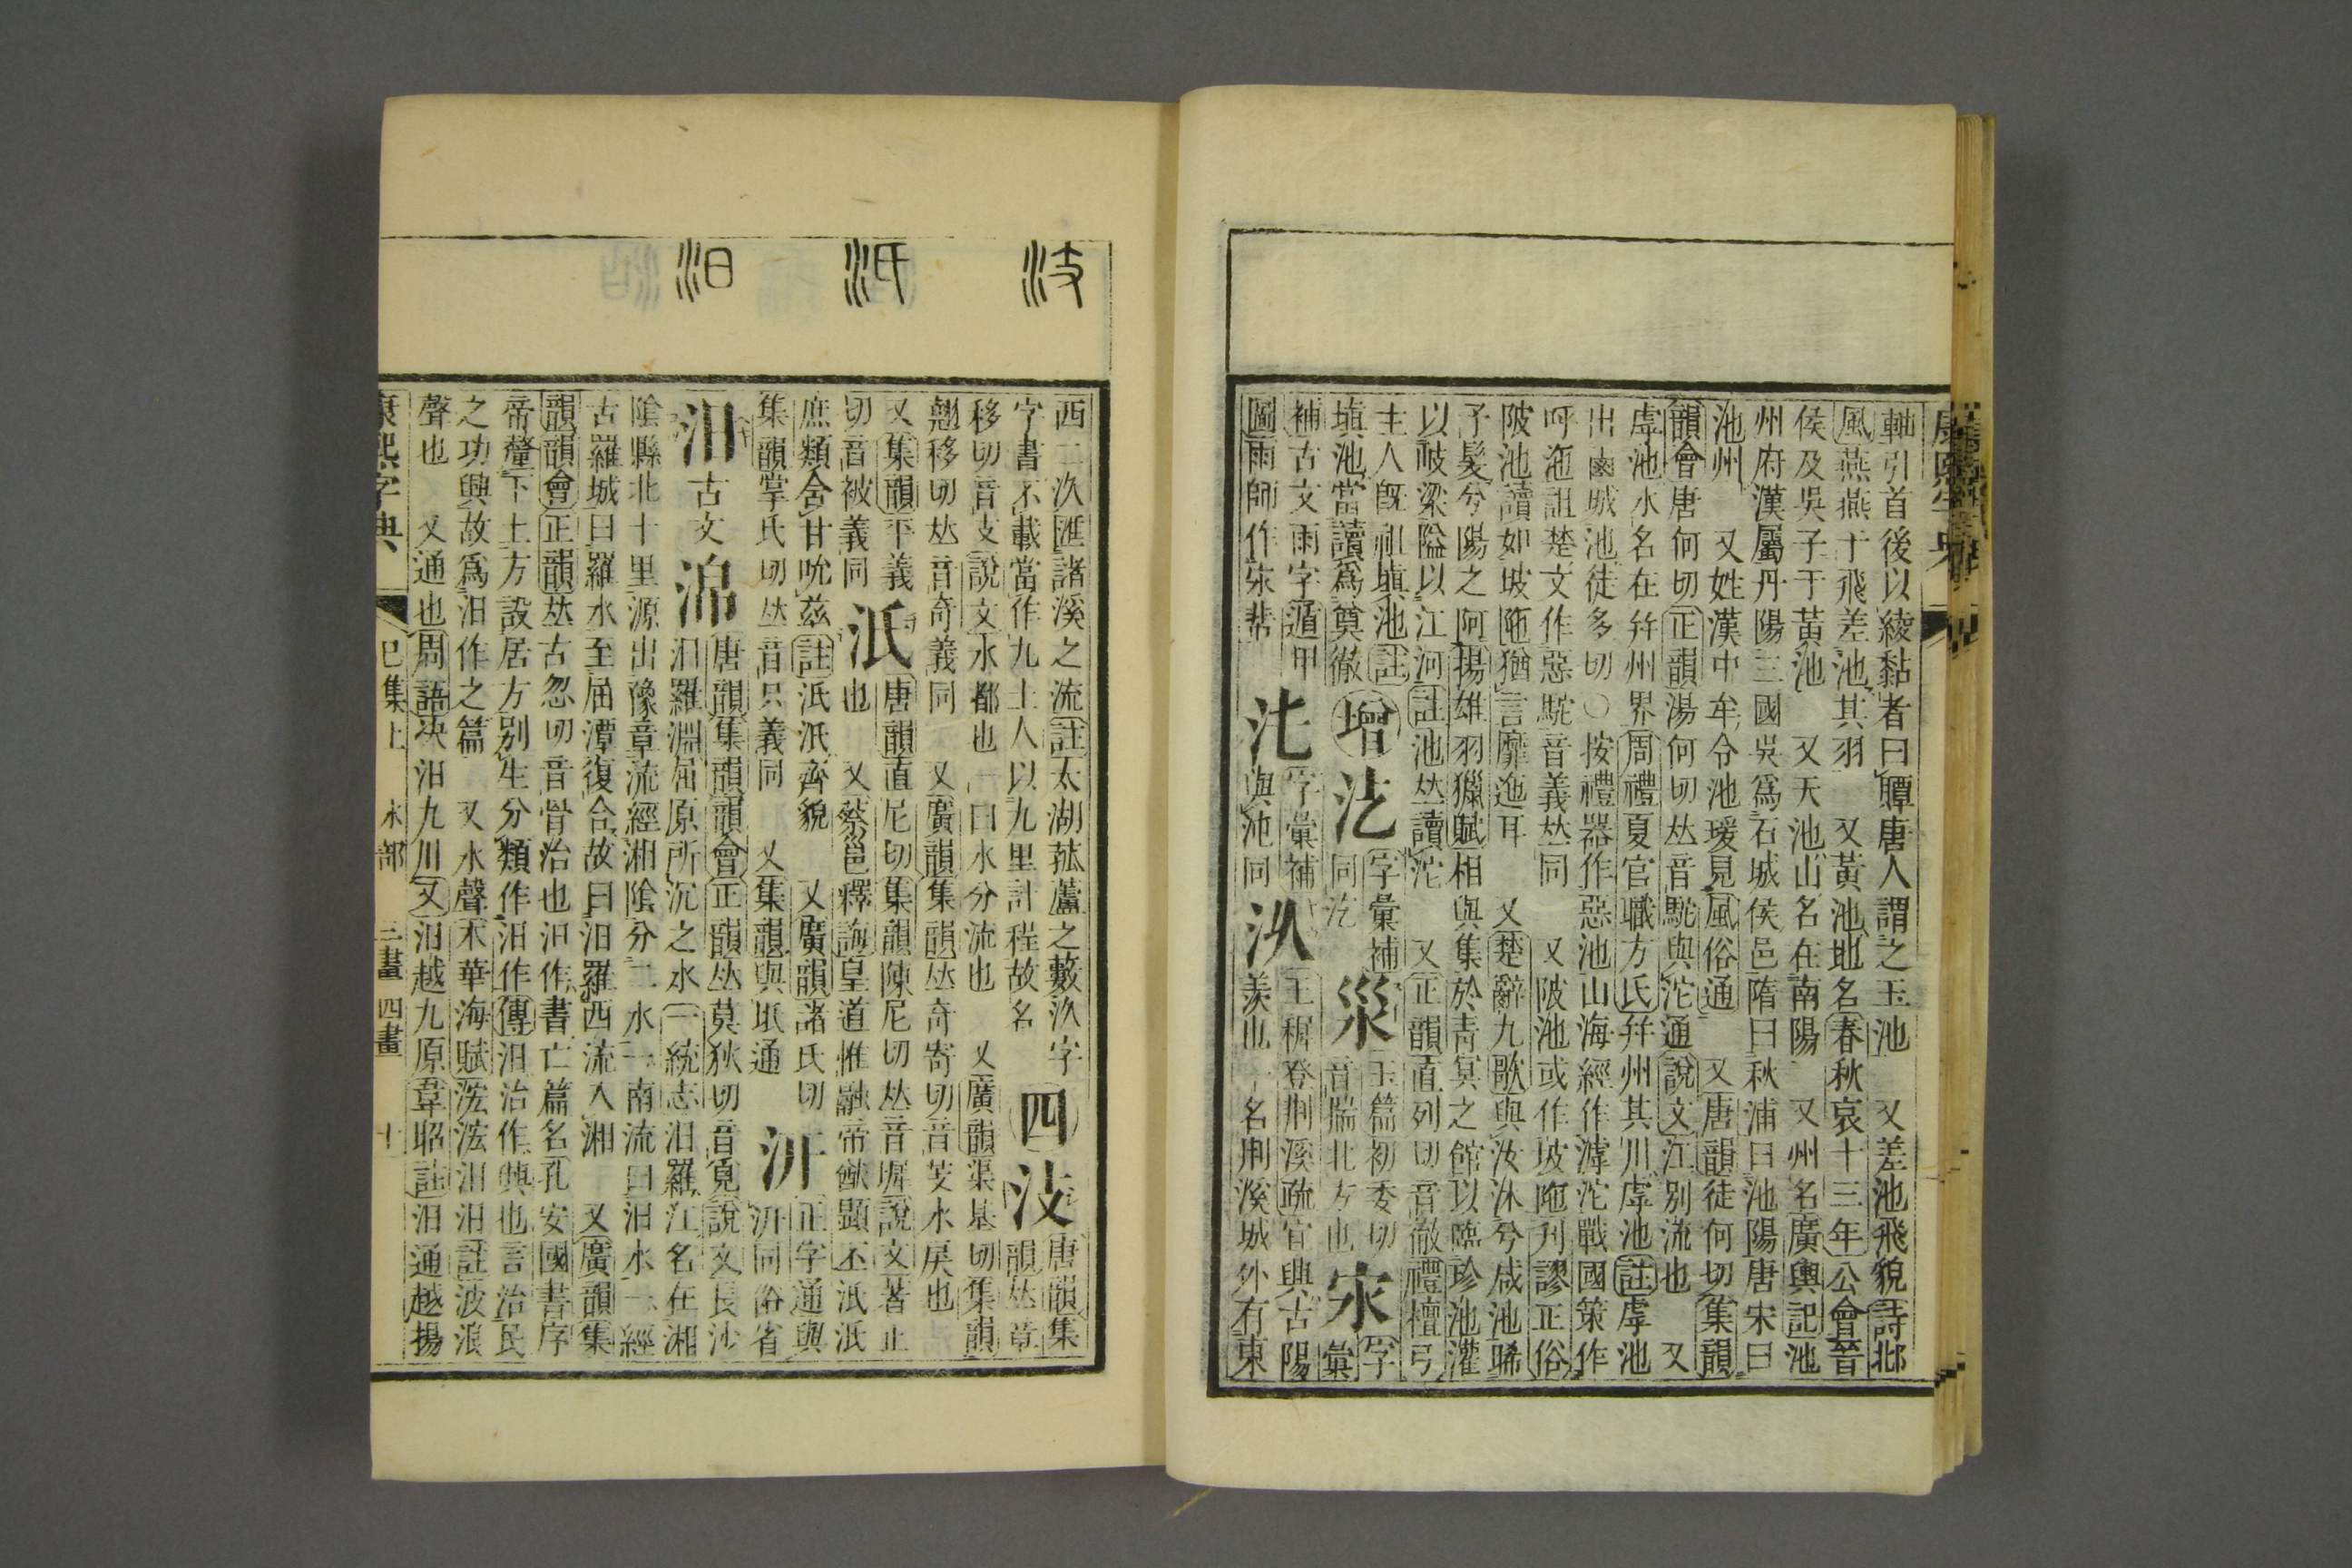 康熙字典
軸引首後以綾黏者曰贉唐人謂之玉池 又差池飛貌詩邶
風燕燕于飛差池其羽 又黃池地名春秋哀十三年公會晉
侯及吳子于黃池 又天池山名在南陽 又州名廣輿記池
州府漢屬丹陽三國吳爲石城侯邑隋曰秋浦曰池陽唐宋曰
池州 又姓漢中牟令池瑗見風俗通 又唐韻徒何切集韻
韻會唐何切正韻湯何切𠀤音駝與沱通說文江別流也 又
虖池水名在幷州界周禮夏官職方氏幷州其川虖池註虖池
出鹵城池徒多切○按禮器作惡池山海經作滹沱戰國策作
呼沲詛楚文作惡駝音義𠀤同 又陂池或作坡陁刋謬正俗
陂池讀如坡陁猶言靡迤耳 又楚辭九歌與汝沐兮咸池晞
予髮兮陽之阿揚雄羽獵賦相與集於靑冥之館以臨珍池灌
以岐梁隘以江河註池𠀤讀沱 又正韻直列切音徹禮檀弓
主人旣祖塡池註
塡池當讀爲奠徹
增
字彙補
同汔
玉篇初委切
音揣北方也
字
彙
補古文雨字遁甲
圖雨師作
字彙補
與沱同
汣
王穉登荆溪疏宜興古陽
羨也一名荆溪城外有東
汥 汦 汨
西二汣匯諸溪之流註太湖菰蘆之藪汣字
字書不載當作九土人以九里計程故名
四
汥
唐韻集
韻𠀤章
移切音支說文水都也一曰水分流也 又廣韻渠基切集韻
翹移切𠀤音奇義同 又廣韻集韻𠀤奇寄切音芰水戾也
又集韻平義
切音被義同
汦
唐韻直尼切集韻陳尼切𠀤音墀說文著止
也 又蔡邕釋誨皇道惟融帝猷顯丕汦汦
庶類含甘吮滋註汦汦齊貌 又廣韻諸氏切
集韻掌氏切𠀤音只義同 又集韻與坻通
汧
正字通與
汧同俗省
汨
古文
唐韻集韻韻會正韻𠀤莫狄切音覓說文長沙
汨羅淵屈原所沉之水一統志汨羅江名在湘
陰縣北十里源出豫章流經湘陰分二水一南流曰汨水一經
古羅城曰羅水至屈潭復合故曰汨羅西流入湘 又廣韻集
韻韻會正韻𠀤古忽切音骨治也汨作書亡篇名孔安國書序
帝釐下土方設居方別生分類作汨作傳汨治作興也言治民
之功興故爲汨作之篇 又水聲木華海賦泫泫汨汨註波浪
聲也 又通也周語決汨九川又汨越九原韋昭註汨通越揚
康熙字典 巳集上 水部 三畫 四畫 十